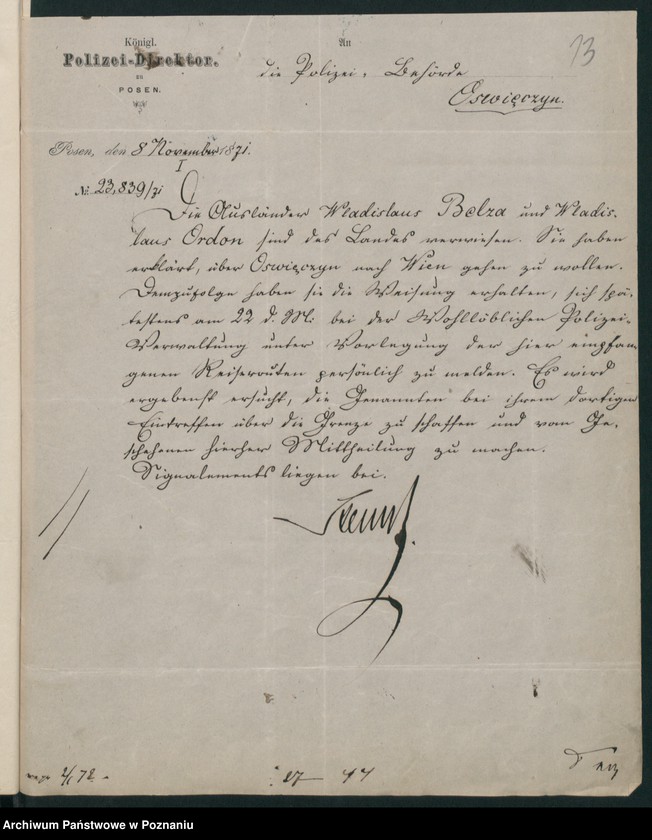 Königl.
Polizei-Direktor.
zu
POSEN.
An
die Polizei-Behörde
Oswięczyn.
13
Posen, den 8 November 1871.
I
№ 23,839/71
Die Ausländer Wladislaus Belza und Wladis-
laus Ordon sind des Landes verwiesen. Sie haben
erklärt, über Oswięczyn nach Wien gehen zu wollen.
Demzufolge haben sie die Weisung erhalten, sich spä-
testens am 22 d. M. bei der Wohllöblichen Polizei-
Verwaltung unter Vorlegung der hier empfan-
genen Reiserouten persönlich zu melden. Es wird
ergebenst ersucht, die Genannten bei ihrem dortigen
Eintreffen über die Grenze zu schaffen und vom Ge-
schehenen hierher Mittheilung zu machen.
Signalements liegen bei.
2/1 72.
27
Archiwum Państwowe w Poznaniu